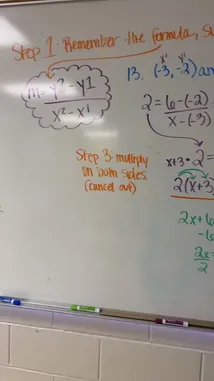 Step 1: Remember the formula, S
m = y² - y1
x² - x¹
13. (-3, -2) an
x' y'
2 = 6-(-2)
x-(-3)
Step 3: multiply
on both sides
(cancel out)
x+3 • 2 =
2(x+3
2x+6
-6
2x =
2